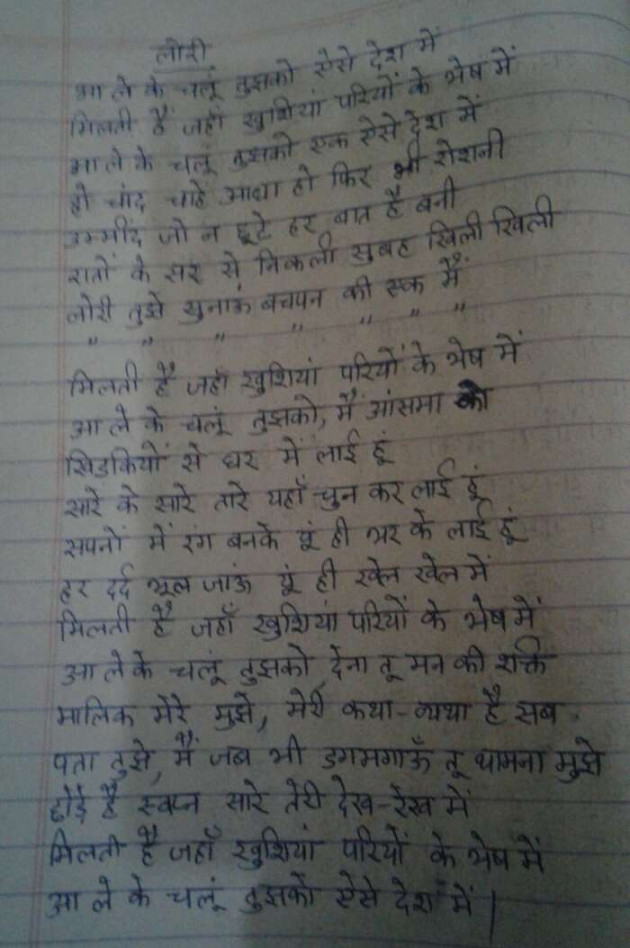 लोरी
आ ले के चलूं तुझको ऐसे देश में
मिलती हैं जहाँ खुशियां परियों के भेष में
आ ले के चलूं तुझको एक ऐसे देश में
हो चांद चाहे आधा हो फिर भी रोशनी
उम्मीद जो न छूटे हर बात है बनी
रातों के सर से निकली सुबह खिली खिली
लोरी तुझे सुनाऊं बचपन की एक मैं
" " " " " " "
मिलती है जहाँ खुशियां परियों के भेष में
आ ले के चलूं तुझको, मैं आंसमा को
खिडकियों से घर में लाई हूं
सारे के सारे तारे यहाँ चुन कर लाई हूं
सपनों में रंग बनके यूं ही भर के लाई हूं
हर दर्द भूल जांऊ यूं ही खेल खेल में
मिलती है जहाँ खुशियां परियों के भेष में
आ ले के चलूं तुझको, देना तू मन की शक्ति
मालिक मेरे मुझे, मेरी कथा-व्यथा है सब
पता तुझे, मैं जब भी डगमगाऊँ तू थामना मुझे
छोड़े हैं स्वप्न सारे तेरी देख-रेख में
मिलती है जहाँ खुशियां परियों के भेष में
आ ले के चलूं तुझको ऐसे देश में।